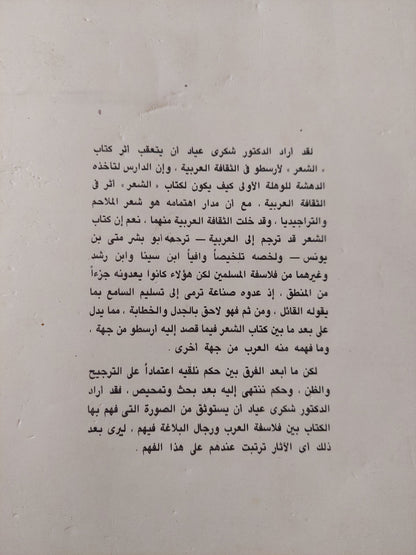 لقد أراد الدكتور شكرى عياد أن يتعقب أثر كتاب
« الشعر » لأرسطو فى الثقافة العربية ، وإن الدارس لتأخذه
الدهشة للوهلة الأولى كيف يكون لكتاب « الشعر » أثر فى
الثقافة العربية ، مع أن مدار اهتمامه هو شعر الملاحم
والتراجيديا ، وقد خلت الثقافة العربية منهما ، نعم إن كتاب
الشعر قد ترجم إلى العربية — ترجمه أبو بشر متى بن
يونس — ولخصه تلخيصاً وافياً ابن سينا وابن رشد
وغيرهما من فلاسفة المسلمين لكن هؤلاء كانوا يعدونه جزءاً
من المنطق ، إذ عدوه صناعة ترمى إلى تسليم السامع بما
يقوله القائل ، ومن ثم فهو لاحق بالجدل والخطابة ، مما يدل
على بعد ما بين كتاب الشعر فيما قصد إليه أرسطو من جهة ،
وما فهمه منه العرب من جهة أخرى .
لكن ما أبعد الفرق بين حكم نلقيه اعتماداً على الترجيح
والظن ، وحكم ننتهى إليه بعد بحث وتمحيص ، فقد أراد
الدكتور شكرى عياد أن يستوثق من الصورة التى فهم بها
الكتاب بين فلاسفة العرب ورجال البلاغة فيهم ، ليرى بعد
ذلك أى الآثار ترتبت عندهم على هذا الفهم .